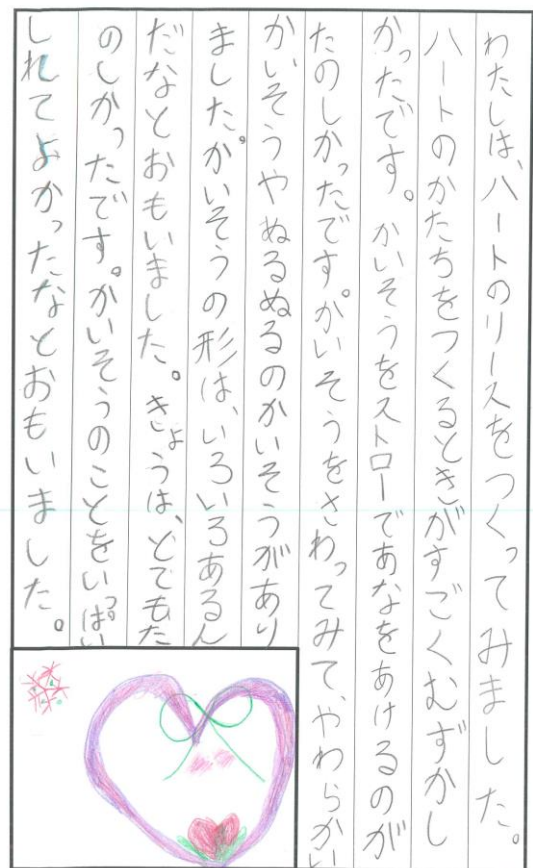 わたしは、ハートのリースをつくってみました。
ハートのかたちをつくるときがすごくむずかし
かったです。かいそうをストローであなをあけるのが
たのしかったです。かいそうをさわってみて、やわらかい
かいそうやぬるぬるのかいそうがあり
ました。かいそうの形は、いろいろあるん
だなとおもいました。きょうは、とてもた
のしかったです。かいそうのことをいっぱい
しれてよかったなとおもいました。